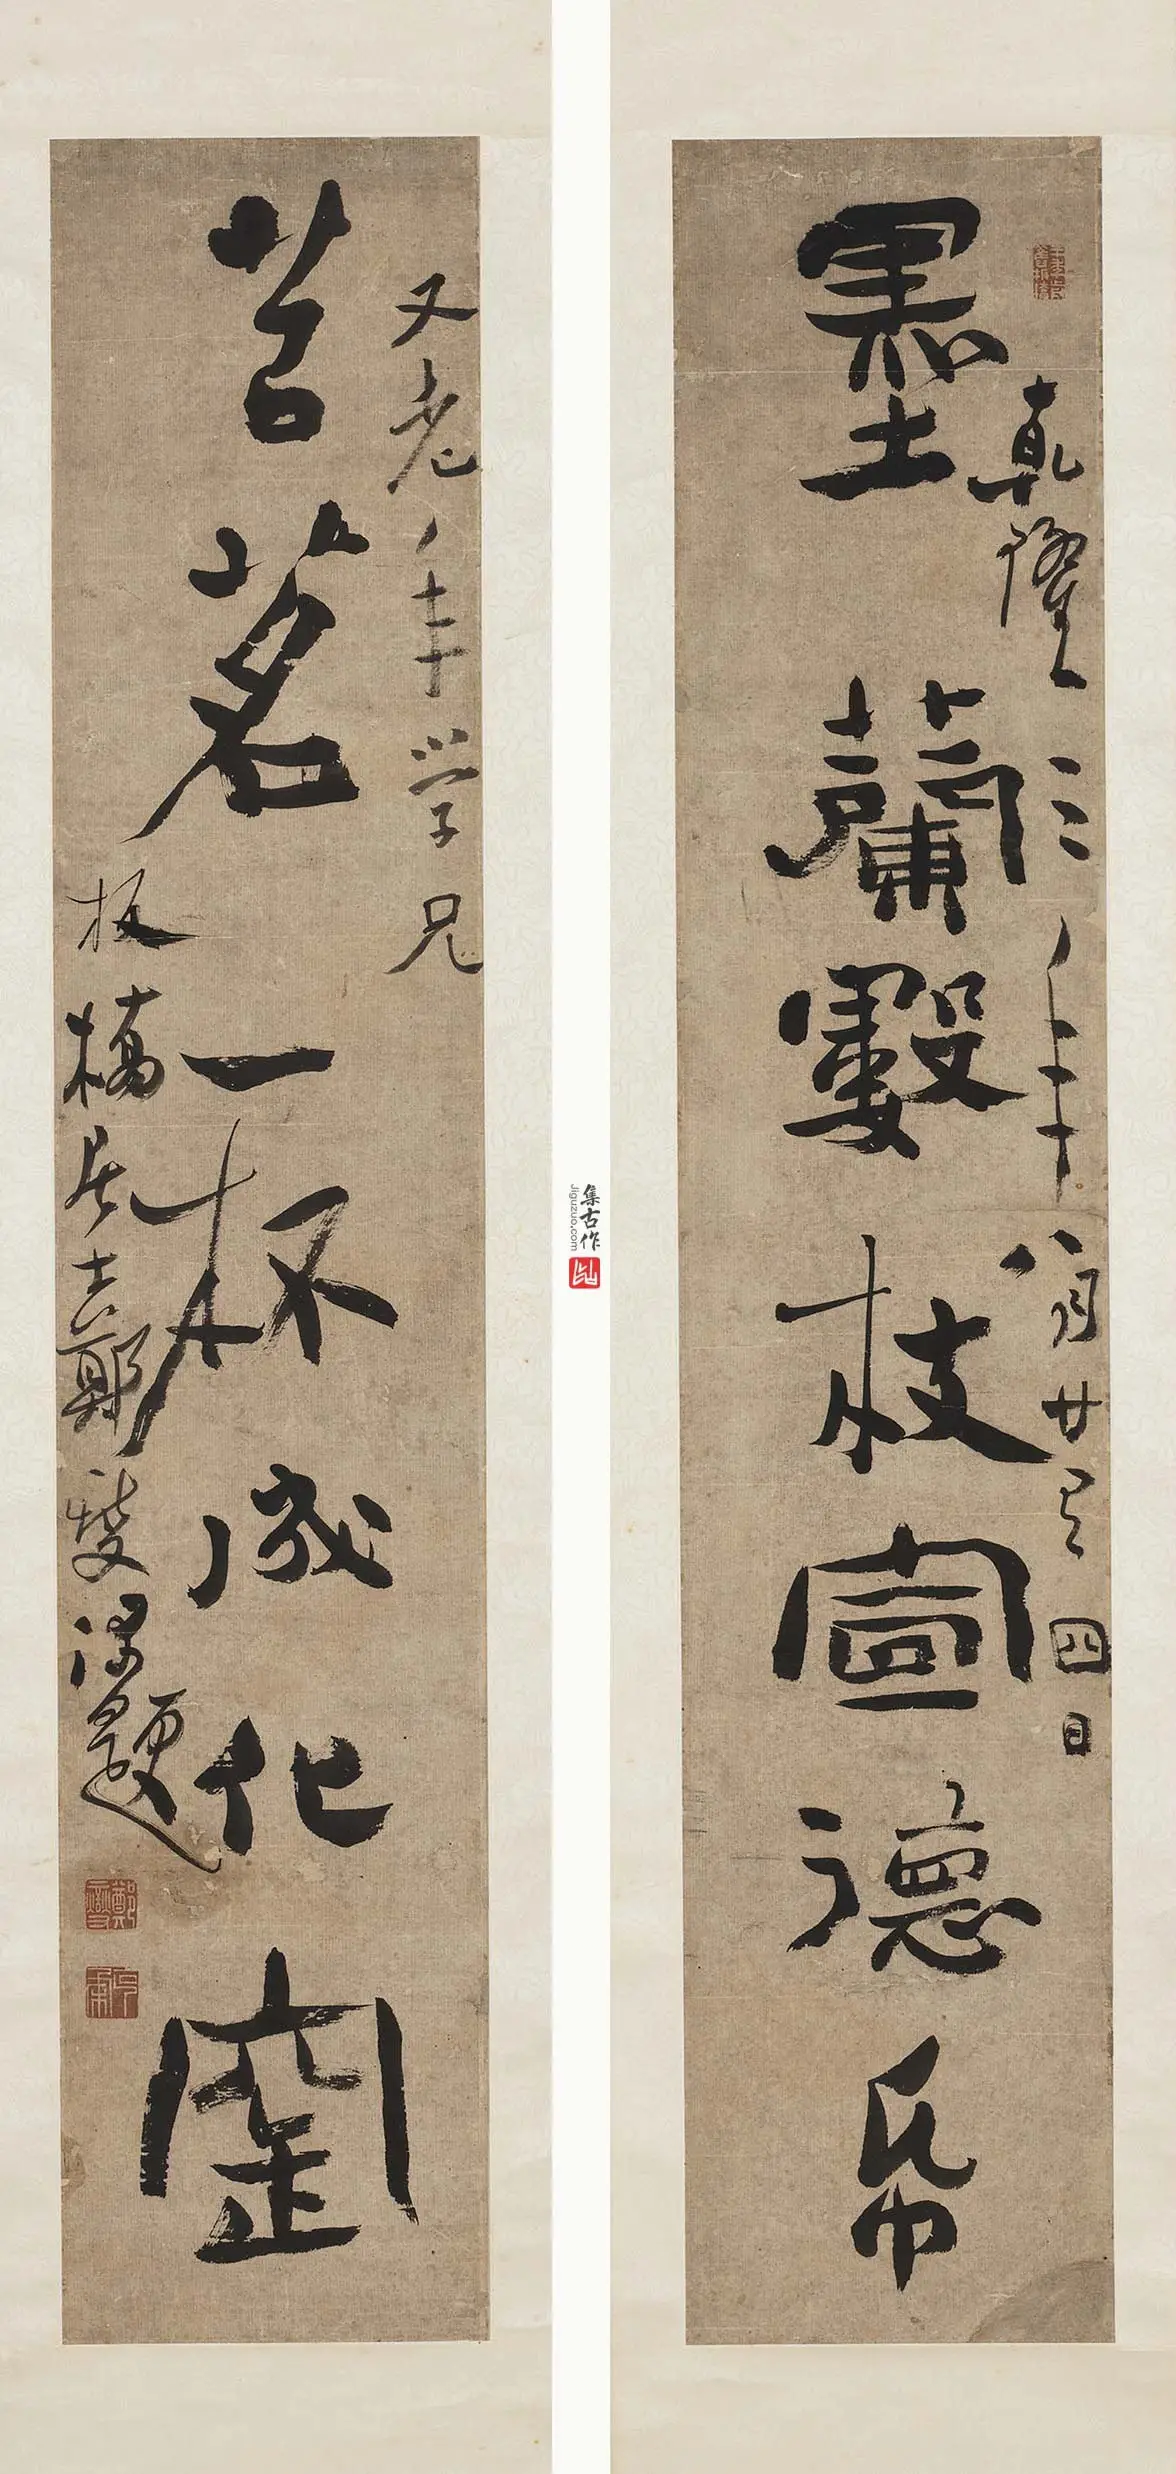 墨蘭數枝宣德帋
乾隆三年八月廿又四日
苦茗一杯成化窑
又老年學兄
板橋居士鄭燮題
集古作
jiguzuo.com